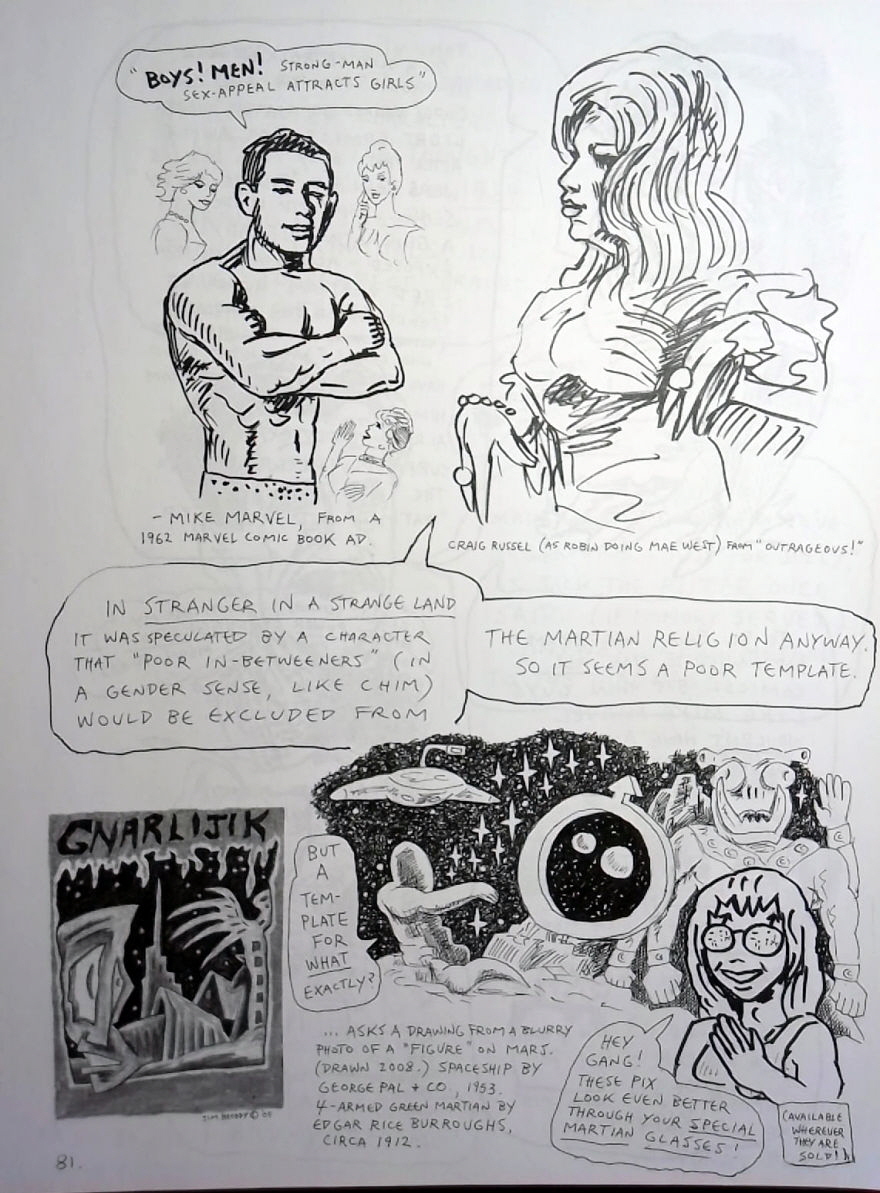 "BOYS! MEN! STRONG-MAN
SEX-APPEAL ATTRACTS GIRLS"
- MIKE MARVEL, FROM A
1962 MARVEL COMIC BOOK AD.
CRAIG RUSSEL (AS ROBIN DOING MAE WEST) FROM "OUTRAGEOUS!"
IN STRANGER IN A STRANGE LAND
IT WAS SPECULATED BY A CHARACTER
THAT "POOR IN-BETWEENERS" (IN
A GENDER SENSE, LIKE CHIM)
WOULD BE EXCLUDED FROM
THE MARTIAN RELIGION ANYWAY.
SO IT SEEMS A POOR TEMPLATE.
GNARLIJIK
BUT
A
TEM-
PLATE
FOR
WHAT
EXACTLY?
... ASKS A DRAWING FROM A BLURRY
PHOTO OF A "FIGURE" ON MARS.
(DRAWN 2008.) SPACESHIP BY
GEORGE PAL + CO., 1953.
4-ARMED GREEN MARTIAN BY
EDGAR RICE BURROUGHS,
CIRCA 1912.
HEY
GANG!
THESE PIX
LOOK EVEN BETTER
THROUGH YOUR SPECIAL
MARTIAN GLASSES!
(AVAILABLE
WHEREVER
THEY ARE
SOLD!)
81.